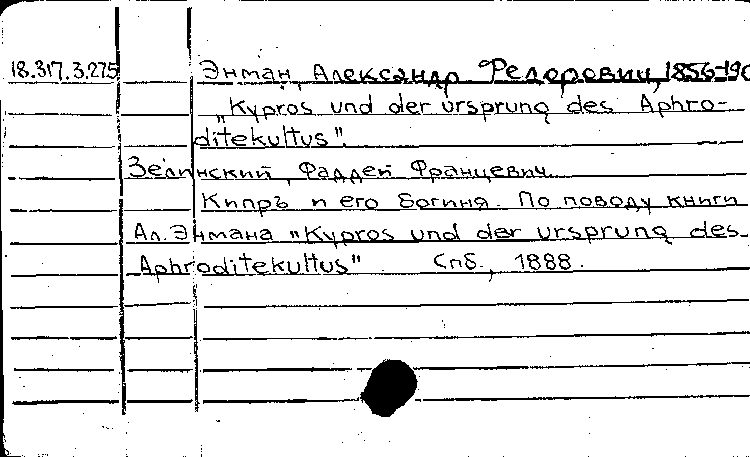 18.317.3.275 Энман, Александр Федорович, 1856-190
„Kypros und der ursprung des Aphro-
ditekultus".
Зелинский, Фаддей Францевич
Кипръ и его богиня. По поводу книги
Ал. Энмана "Kypros und der ursprung des
Aphroditekultus" Спб., 1888.